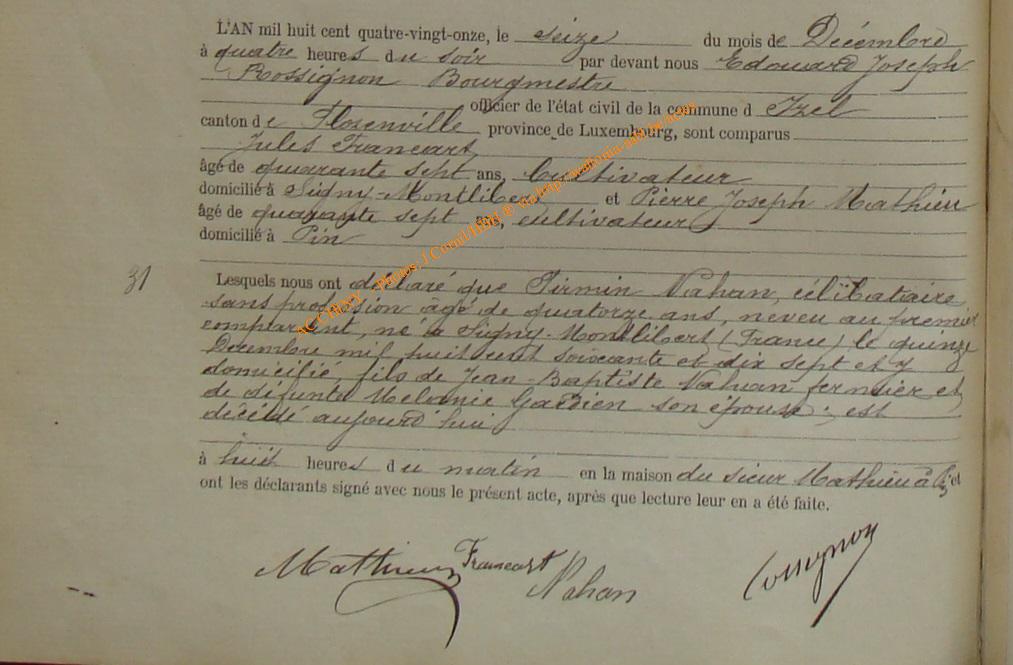 L'AN mil huit cent quatre-vingt-onze, le seize du mois de Décembre
à quatre heures du soir par devant nous Edouard Joseph
Rossignon Bourgmestre
officier de l'état civil de la commune d Izel
canton de Florenville province de Luxembourg, sont comparus
Jules Francart
âgé de quarante sept ans, Cultivateur
domicilié à Signy-Montlibert et Pierre Joseph Mathieu
âgé de quarante sept ans, cultivateur
domicilié à Pin
31
Lesquels nous ont déclaré que Firmin Nahan, célibataire
sans profession âgé de quatorze ans, neveu au premier
comparant, né à Signy-Montlibert (France) le quinze
Décembre mil huit cent soixante et dix sept et y
domicilié, fils de Jean-Baptiste Nahan fermier et
de défunte Melanie Gardien son épouse; est
décédé aujourd'hui
à huit heures du matin en la maison du sieur Mathieu à Pin et
ont les déclarants signé avec nous le présent acte, après que lecture leur en a été faite.
Mathieu Francart
Nahan
Rossignon